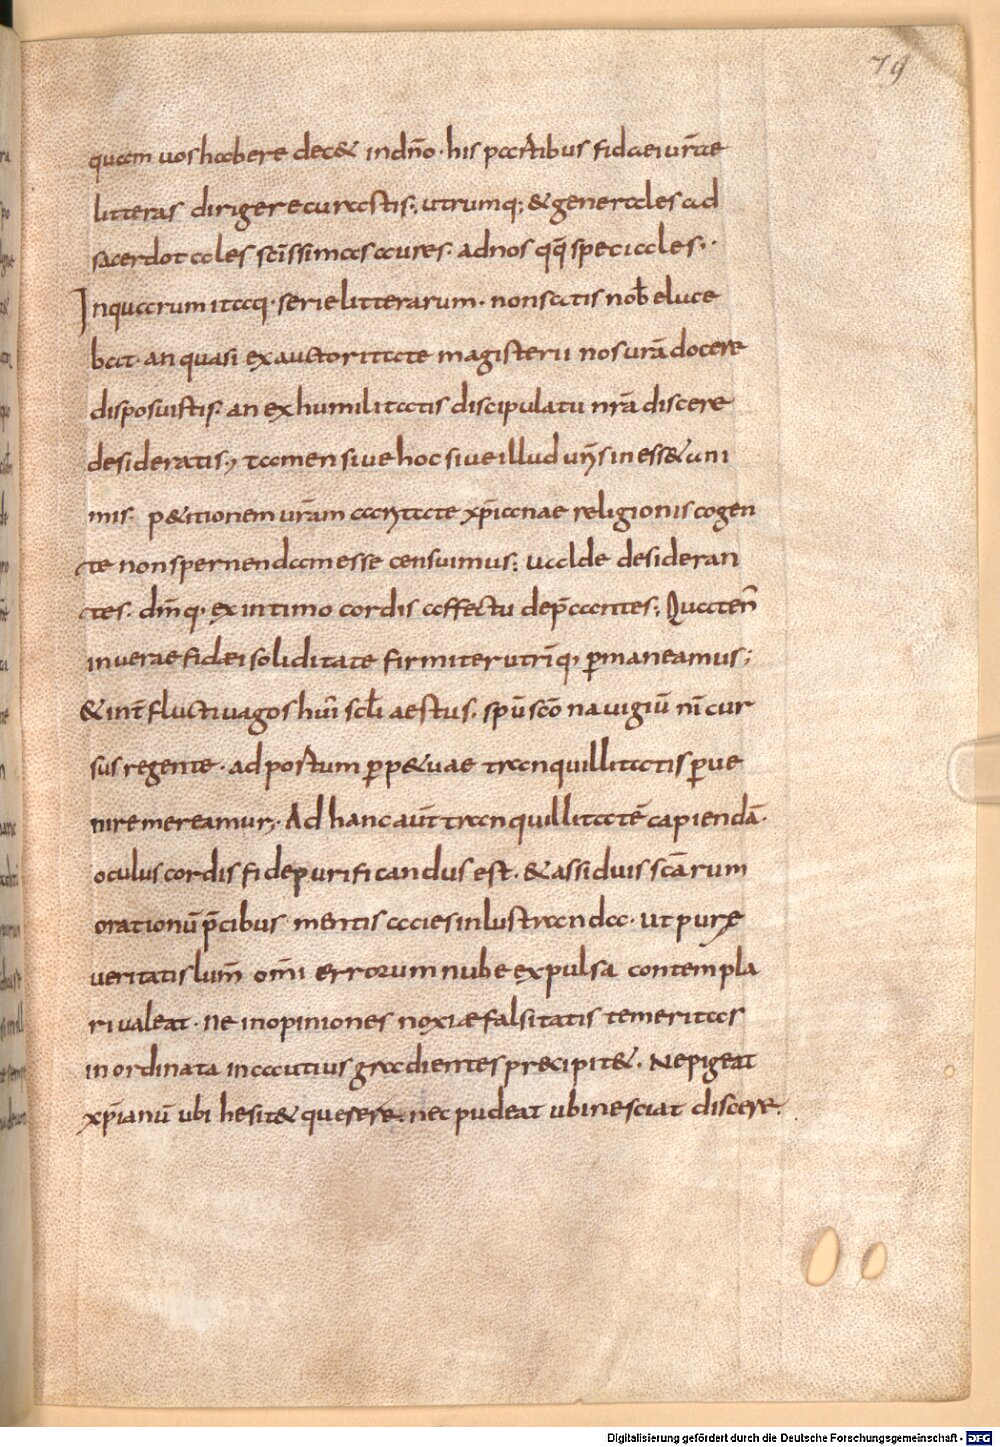 79
quam uos habere dec& in dn̄o · his partibus fidaei urāe
litteras dirigere curastis; utrumq; & generales ad
sacerdotales sc̄issimas aures · ad nos qq̄ speciales; ·
In quarum itaq · serie litterarum · non satis nob̄ eluce
bat · an quasi ex auctoritate magisterii nos urā docere
disposuistis · an ex humilitatis discipulatu nr̄a discere
desideratis; tamen siue hoc siue illud ur̄īs iness& ani
mis · p&itionem urām caritate xp̄ianae religionis cogen
te non spernendam esse censuimus; ualde desideran
tes · dm̄q · ex intimo cordis affectu dep̄cantes; Quaten̄
in uerae fidaei soliditate firmiter utriq̄, p̄maneamus;
& int̄ fluctiuagos hui̅ scl̄i aestus · sp̄u sc̄o nauigiū nr̄i cur
sus regente · ad postum p̄p&uae tranquillitatis p̄ue
nire mereamur; Ad hanc aūt tranquillitatē capiendā ·
oculus cordis fide purificandus est · & assiduis sc̄arum
orationū p̄cibus mentis acies inlustranda · ut purę
ueritatis lum̄ om̄i errorum nube expulsa contempla
ri ualeat · ne in opiniones noxiae falsitatis temeritas
inordinata incautius gradientes precipit& · Ne pigeat
xp̄ianū ubi hesit& querere · nec pudeat ubi nesciat discere ·
Digitalisierung gefördert durch die Deutsche Forschungsgemeinschaft - DFG